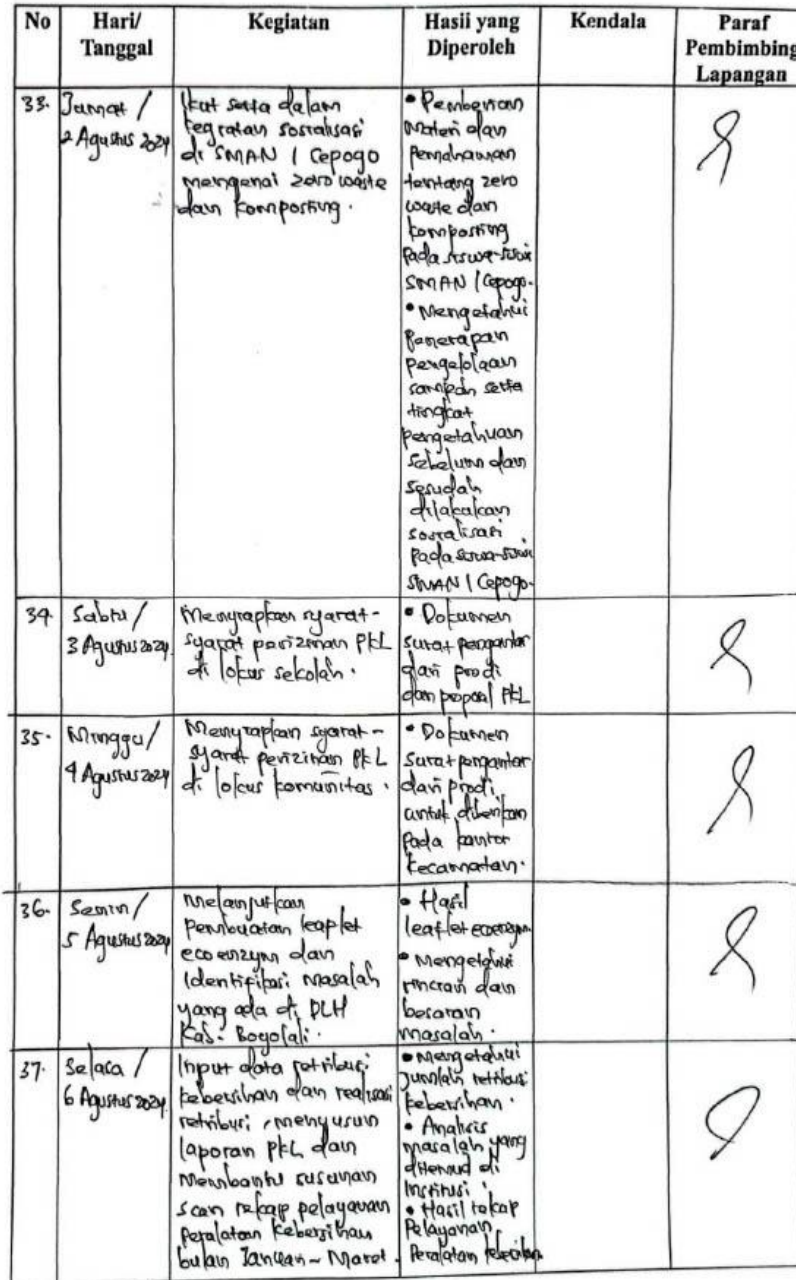 No
Hari/
Tanggal
Kegiatan
Hasil yang
Diperoleh
Kendala
Paraf
Pembimbing
Lapangan
33.
Jumat /
2 Agustus 2024
Ikut serta dalam
kegiatan sosialisasi
di SMAN 1 Cepogo
mengenai zero waste
dan komposting.
• Pemberian
Materi dan
Pemahaman
tentang zero
waste dan
komposting
pada siswa-siswi
SMAN 1 Cepogo.
• Mengetahui
Penerapan
pengelolaan
sampah serta
tingkat
pengetahuan
sebelum dan
sesudah
dilakukan
sosialisasi
pada siswa-siswi
SMAN 1 Cepogo.
34.
Sabtu /
3 Agustus 2024
Menyiapkan syarat-
syarat perizinan PKL
di lokus sekolah.
• Dokumen
surat pengantar
dari prodi
dan proposal PKL
35.
Minggu /
4 Agustus 2024
Menyiapkan syarat-
syarat perizinan PKL
di lokus komunitas.
• Dokumen
surat pengantar
dari prodi
untuk diberikan
pada kantor
kecamatan.
36.
Senin /
5 Agustus 2024
Melanjutkan
pembuatan leaplet
ecoenzym dan
identifikasi masalah
yang ada di DLH
Kab. Boyolali.
• Hasil
leaflet ecoenzym
• Mengetahui
rincian dan
besaran
masalah.
37.
Selasa /
6 Agustus 2024
Input data retribusi
kebersihan dan realisasi
retribusi, menyusun
laporan PKL dan
Membantu susunan
scan rekap pelayanan
Peralatan kebersihan
bulan Januari - Maret.
• Mengetahui
Jumlah retribusi
kebersihan.
• Analisis
masalah yang
di
Institusi.
• Hasil rekap
Pelayanan
Peralatan kebersihan